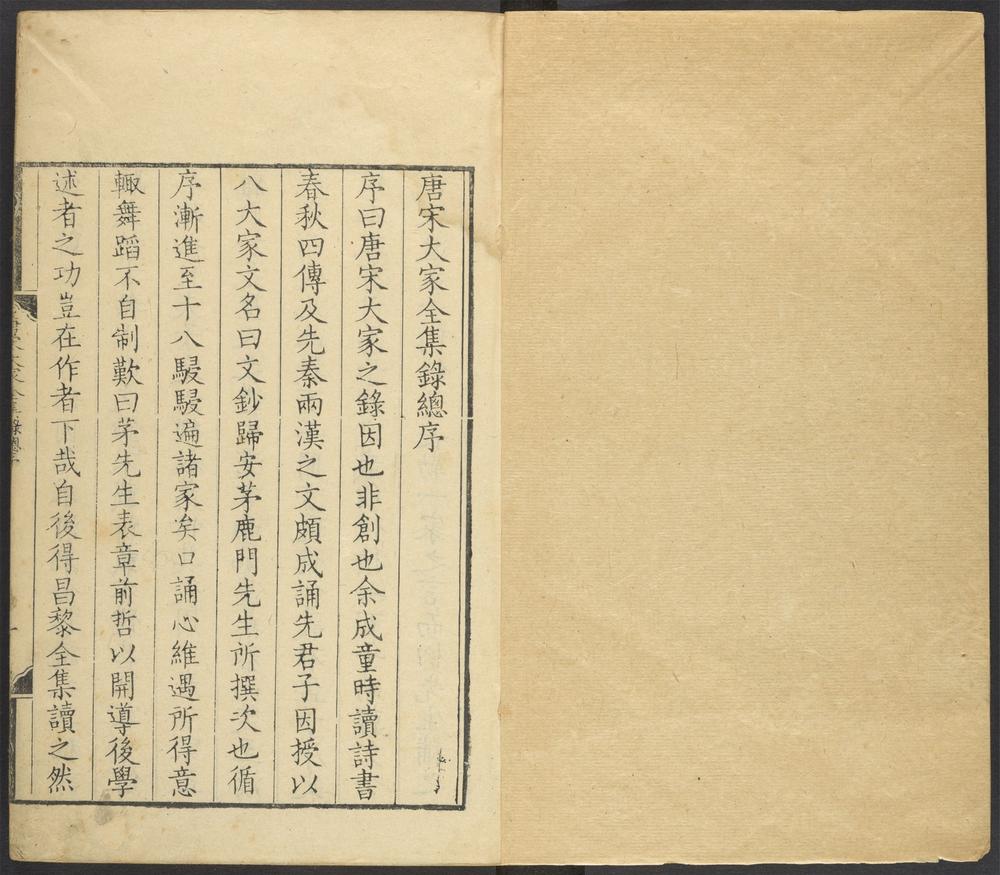 唐宋大家全集錄總序
序曰唐宋大家之錄因也非創也余成童時讀詩書
春秋四傳及先秦兩漢之文頗成誦先君子因授以
八大家文名曰文鈔歸安茅鹿門先生所撰次也循
序漸進至十八駸駸遍諸家矣口誦心維遇所得意
輙舞蹈不自制歎曰茅先生表章前哲以開導後學
述者之功豈在作者下哉自後得昌黎全集讀之然